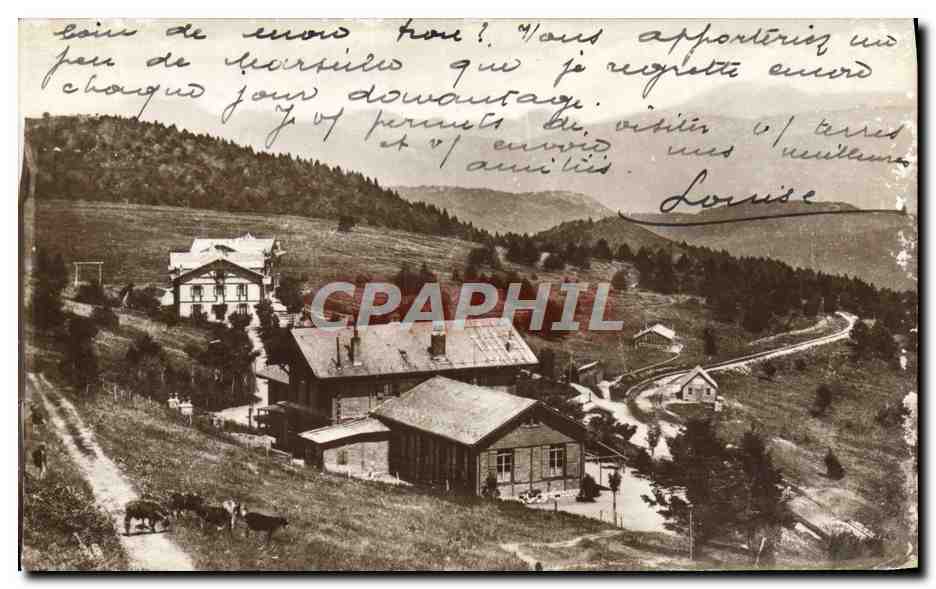 loin de envoi trou ? Vous apporteriez un
peu de Marseille que je regrette encore
chaque jour davantage.
Je v/ permets de visiter v/ terres
et v/ envoie mes meilleures
amitiés
Louise
CPAPHIL